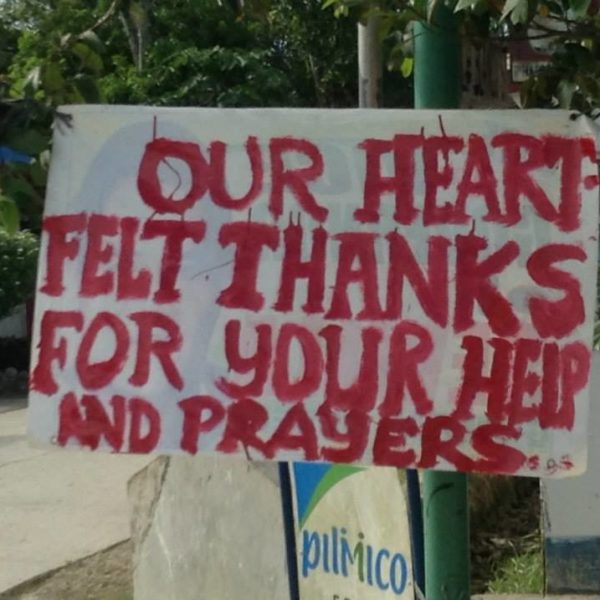 OUR HEART-
FELT THANKS
FOR YOUR HELP
AND PRAYERS...
pilmico